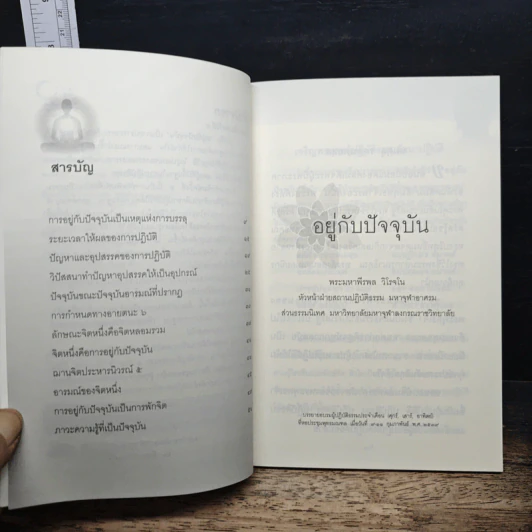 สารบัญ
การอยู่กับปัจจุบันเป็นเหตุแห่งการบรรลุ
ระยะเวลาให้ผลของการปฏิบัติ
ปัญหาและอุปสรรคของการปฏิบัติ
วิปัสสนาทำปัญหาอุปสรรคให้เป็นอุปกรณ์
ปัจจุบันขณะปัจจุบันอารมณ์ที่ปรากฏ
การกำหนดทางอายตนะ ๖
ลักษณะจิตหนึ่งคือจิตหลอมรวม
จิตหนึ่งคือการอยู่กับปัจจุบัน
ฌานจิตประหารนิวรณ์ ๕
อารมณ์ของจิตหนึ่ง
การอยู่กับปัจจุบันเป็นการพักจิต
ภาวะความรู้ที่เป็นปัจจุบัน
อยู่กับปัจจุบัน
พระมหาพีรพล วิโรจโน
หัวหน้าฝ่ายสถานปฏิบัติธรรม มหาจุฬาอาศรม
ส่วนธรรมนิเทศ มหาวิทยาลัยมหาจุฬาลงกรณราชวิทยาลัย
บรรยายอบรมผู้ปฏิบัติธรรมประจำเดือน ศุกร์ เสาร์ อาทิตย์
กุมภาพันธ์